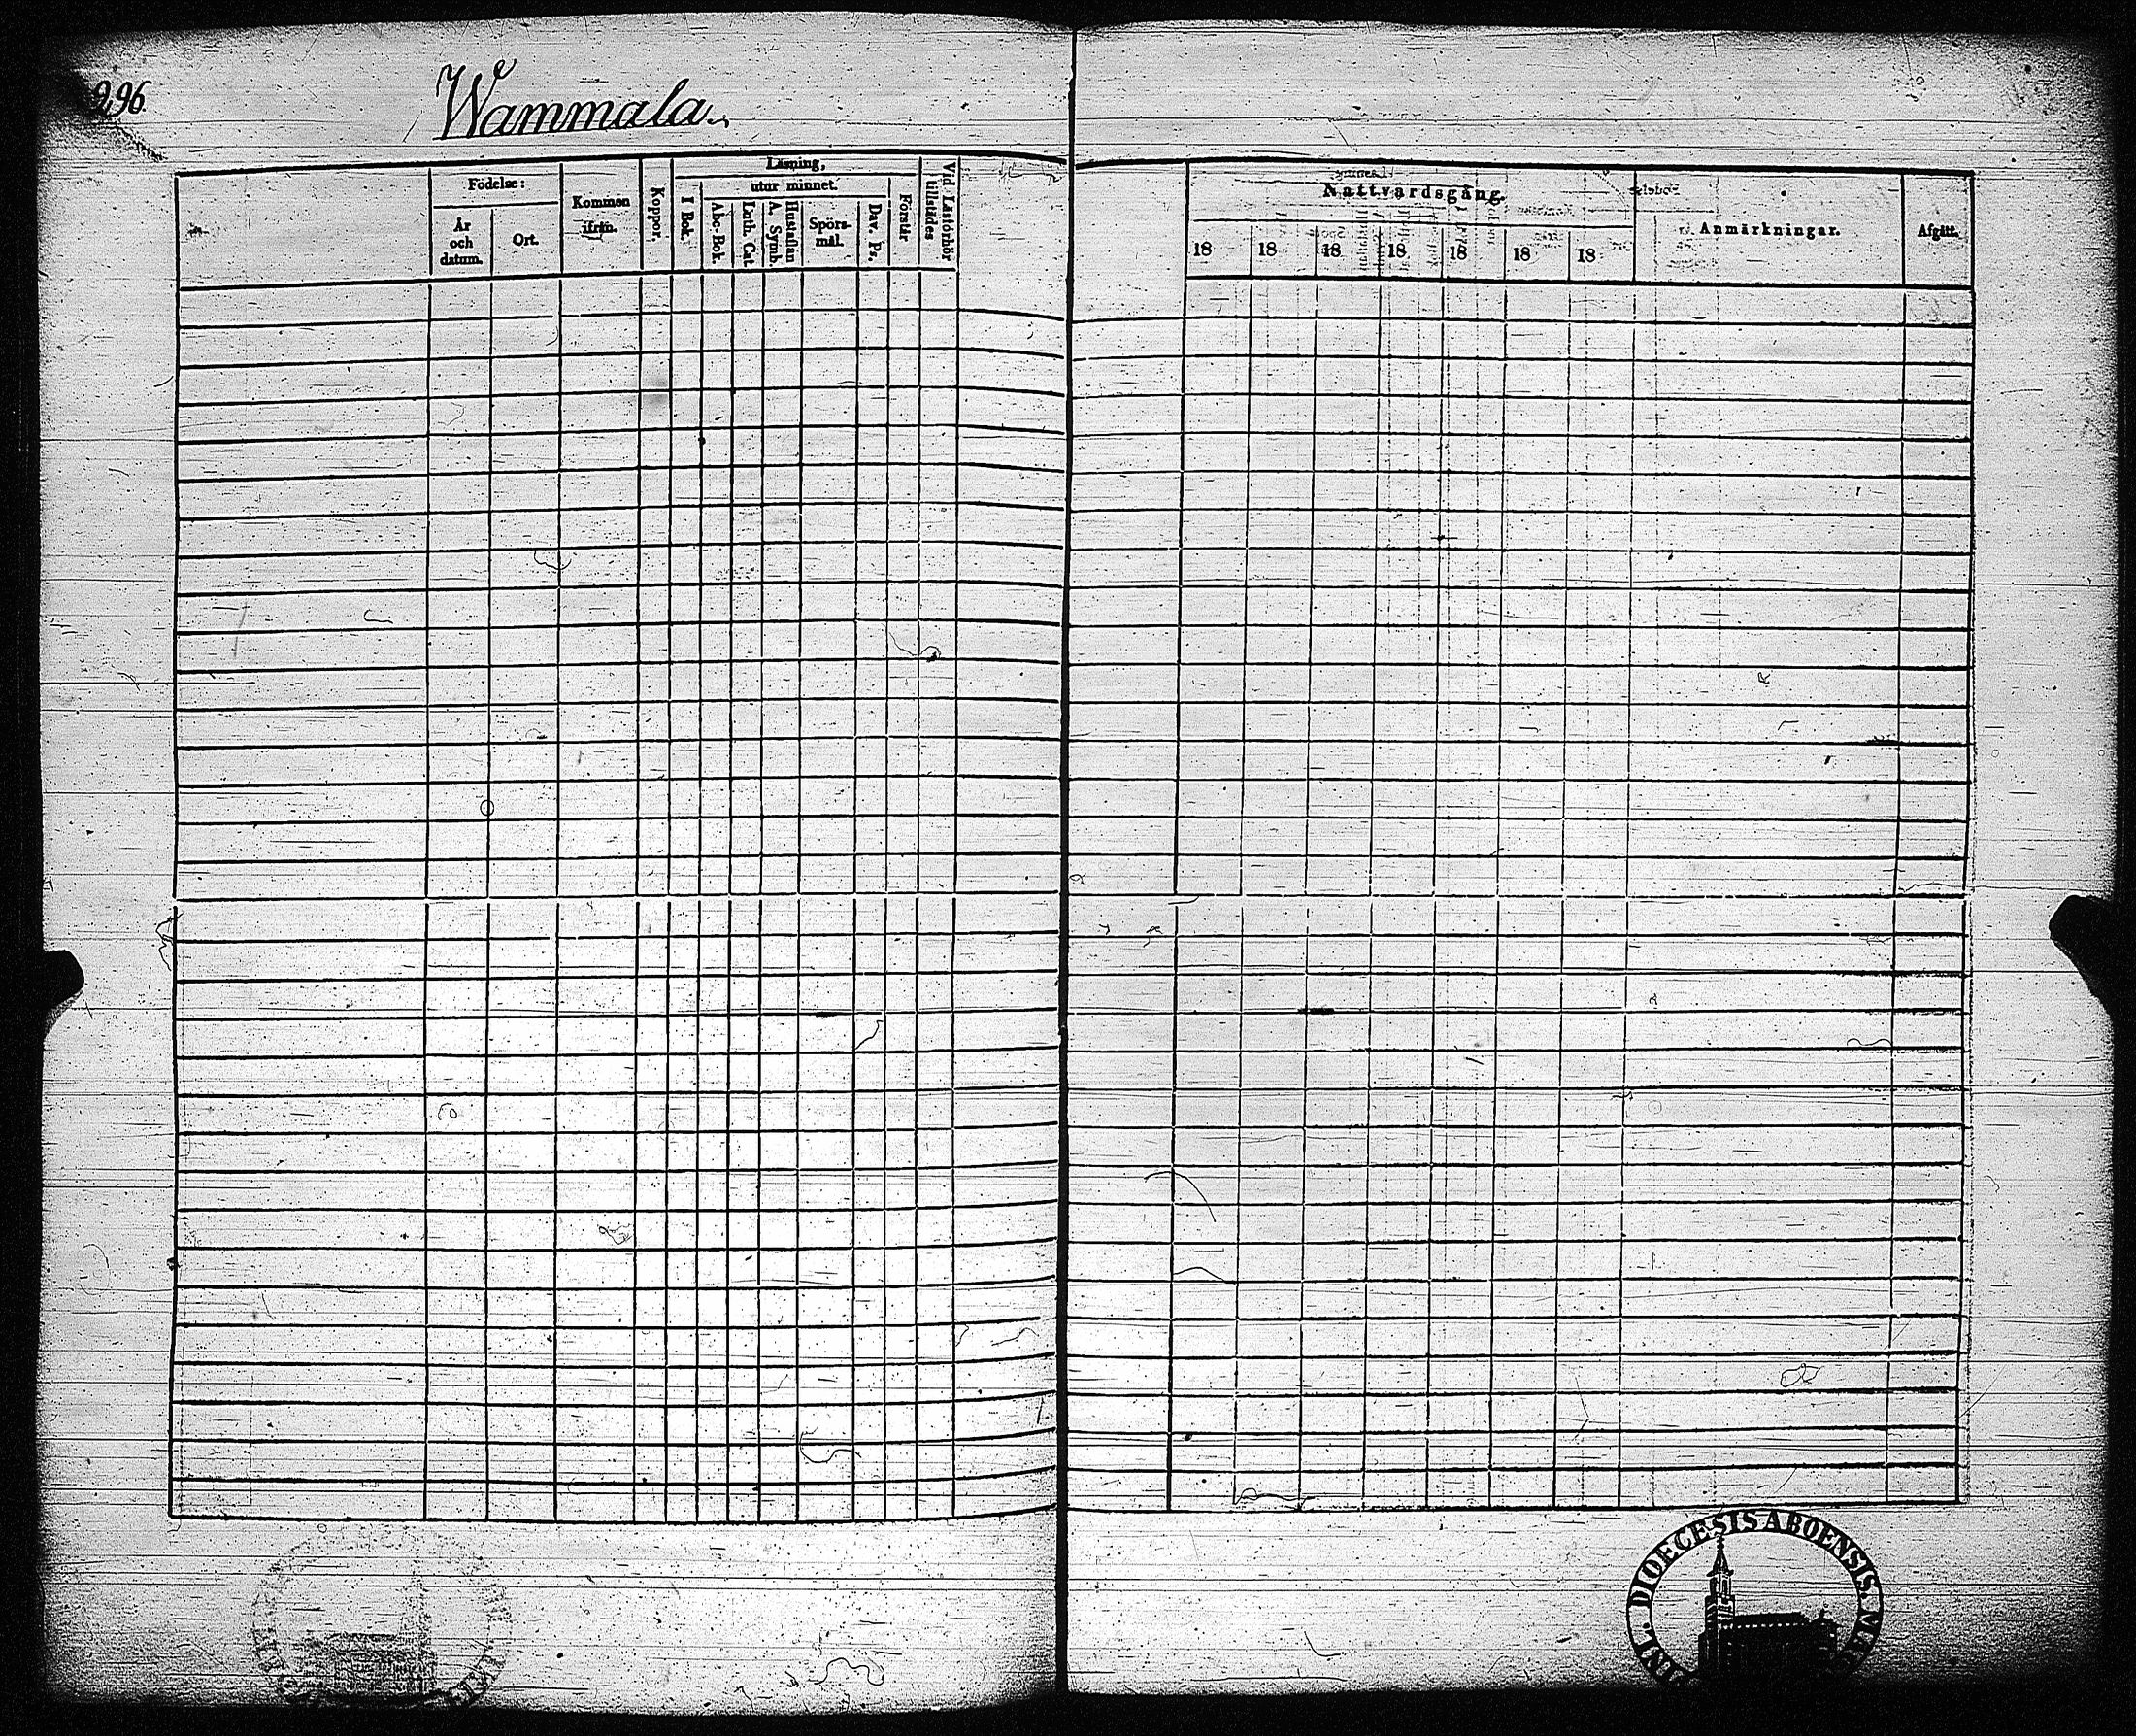 296
Wammala.
Födelse:
År och datum.
Ort.
Kommen ifrån.
Koppor.
Läsning,
I Bok.
utur minnet.
Abc-Bok.
Luth. Cat.
A. Symb.
Hustaflan
Spörs-mål.
Dav. Ps.
Förstår
Vid Läsförhör tillstädes
Nattvardsgång.
18 18 18 18 18 18 18
Anmärkningar.
Afgått.
DIOECESIS ABOENSIS.